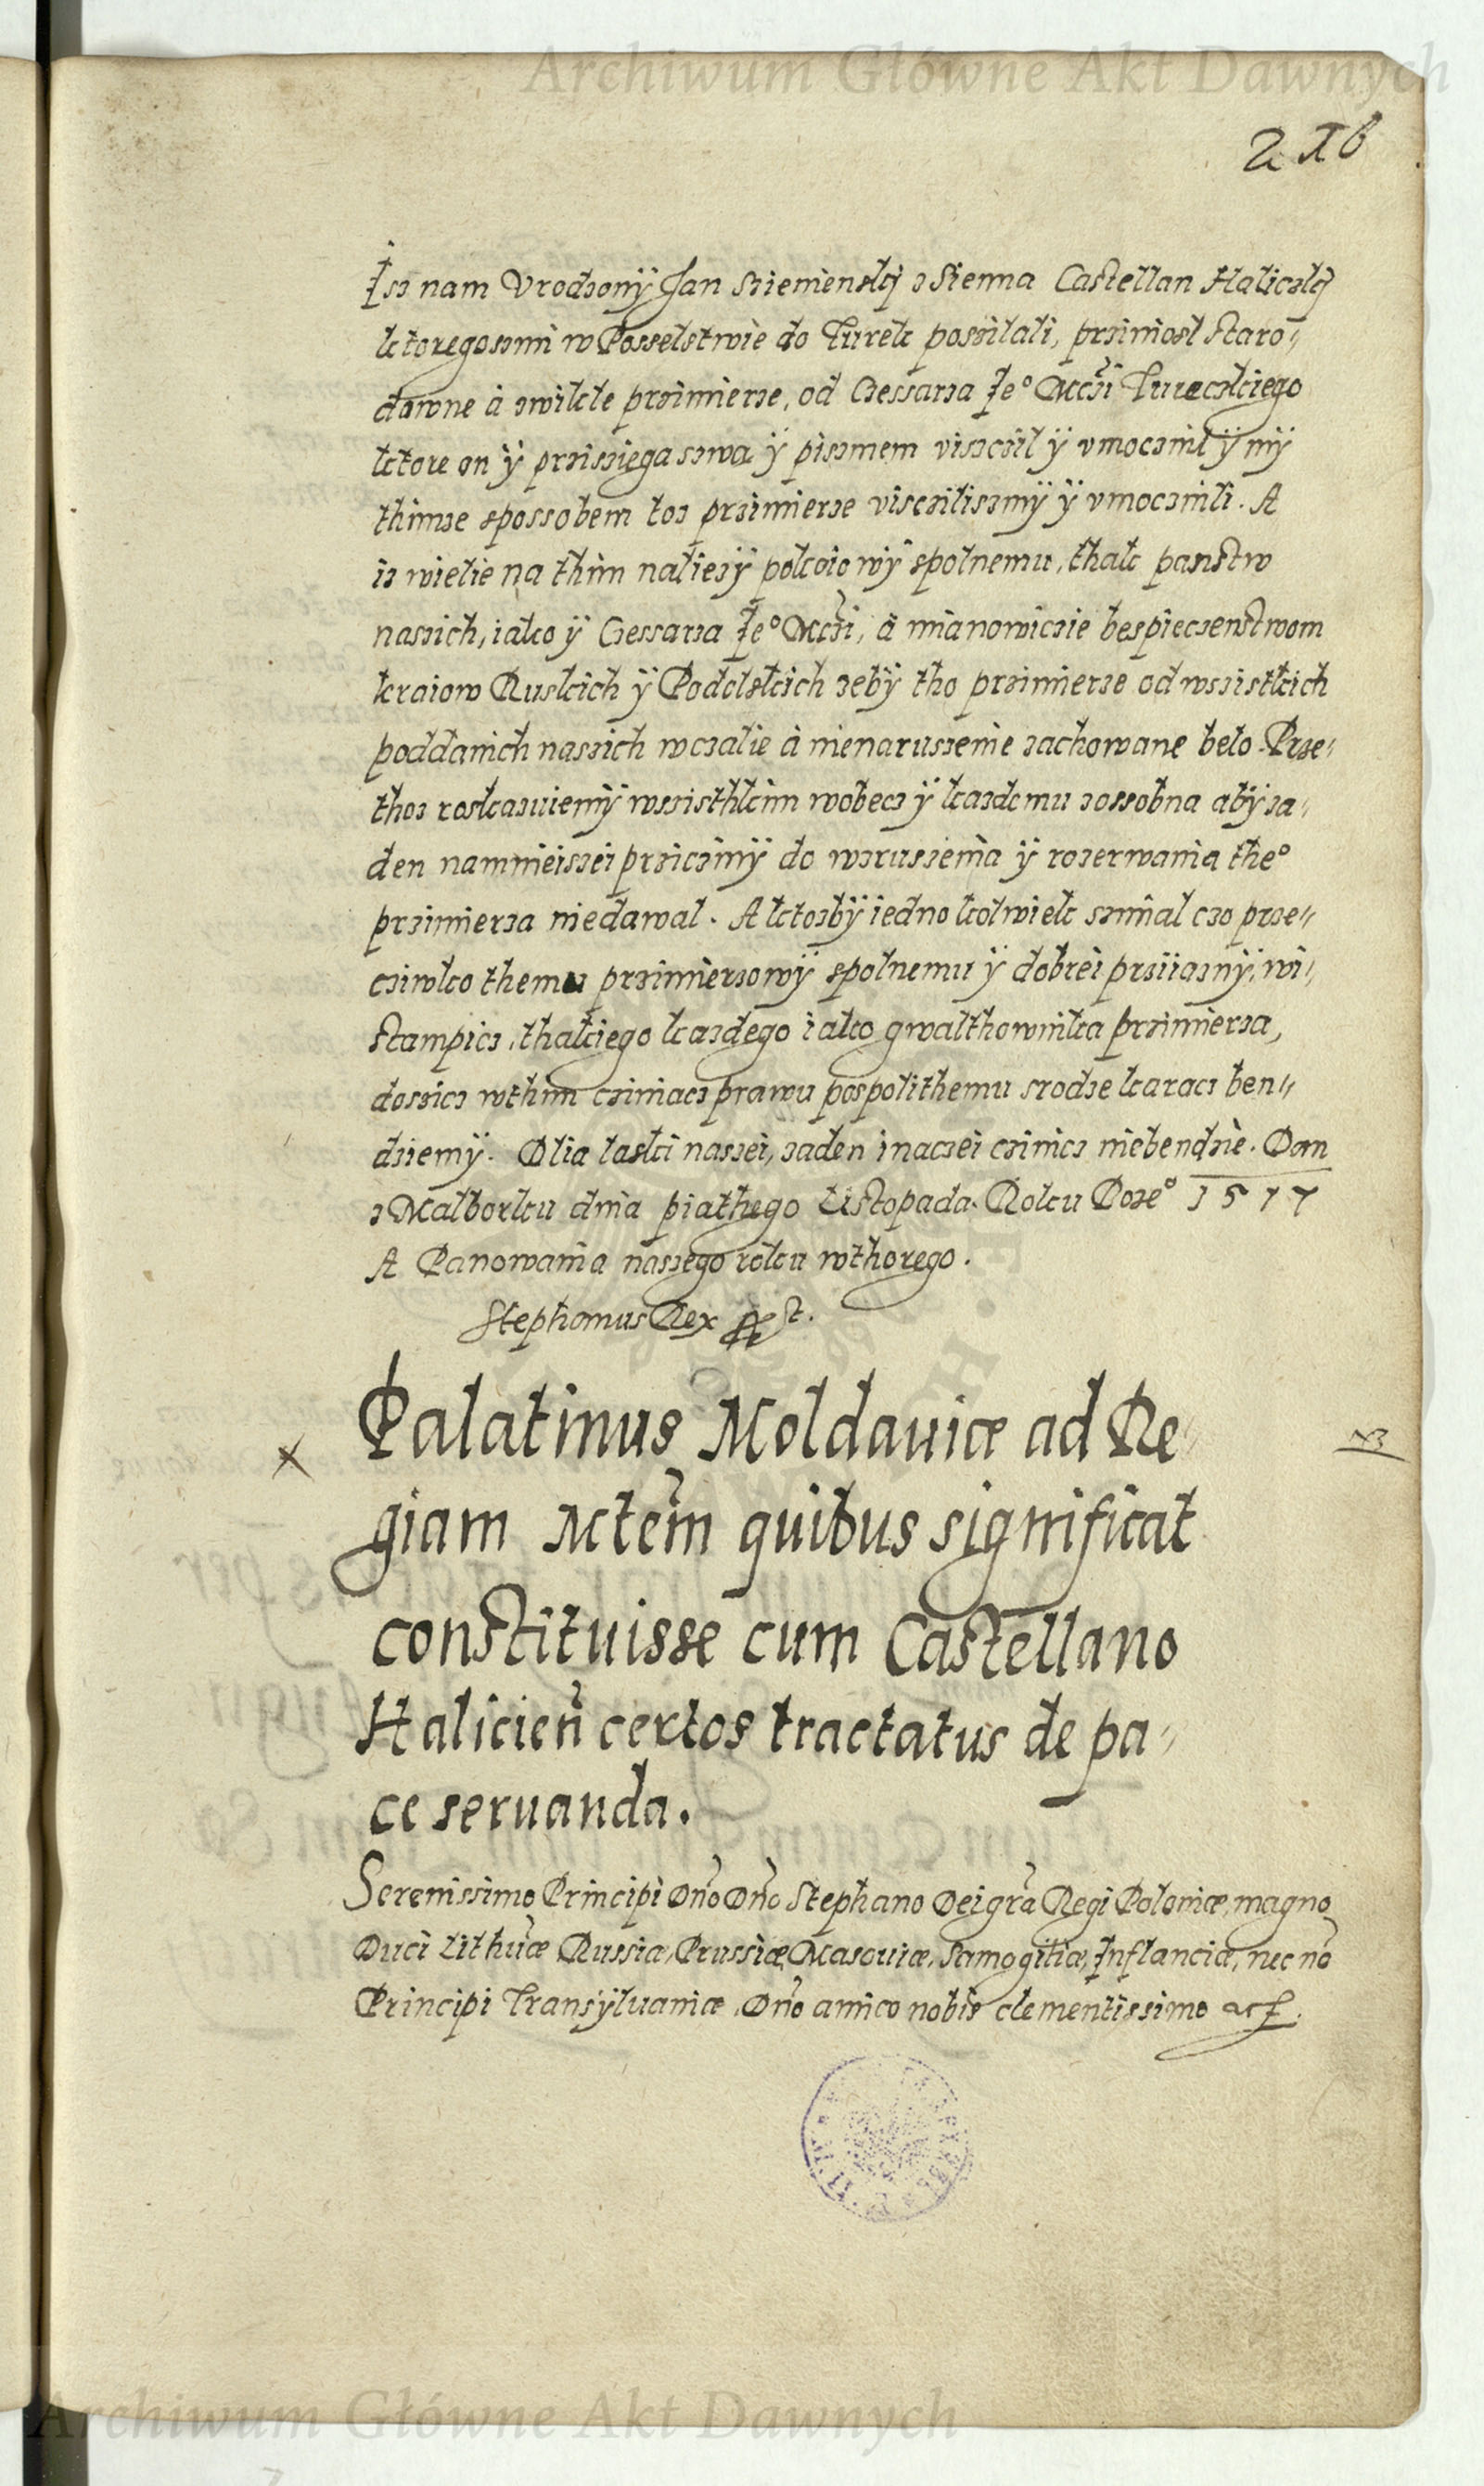 Archiwum Główne Akt Dawnych
216
Isz nam Vrodzonÿ Jan Sziemienskÿ z Sienna Castellan Haliczkÿ
ktoregoszmi w Posselstwie do Turek poszilali, prziniosł staro„
dawne à zwikle przimierze, od Czessarza Jeº Mczi Tureczkiego
ktore on ÿ przissiega szwa ÿ piszmem viszczil ÿ vmoczmil ÿ mÿ
thimze spossobem toz przimierze viscziliszmÿ ÿ vmocznili. A
iz wielie na thim naliezÿ pokoiowÿ spolnemu, thak panstw
naszich, iako ÿ Czessarza Jeº Mczi, à mianowiczie bespieczenstwom
kraiow Ruskich ÿ Podolskich zebÿ tho przimierze od wszistkich
poddanich naszich wczalie à nienaruszenie zachowane beło. Prze„
thoz roskazuiemÿ wszisthkim wobecz ÿ kazdemu zossobna abÿ za„
den namnieiszei prziczinÿ do wzruszenia ÿ rozerwania theº
przimierza niedawal. A ktozbÿ iedno kolwiek szmial czo prze„
cziwko themu przimierzowÿ spolnemu ÿ dobrei prziiaznÿ, wi„
stampicz, thakiego kazdego iako gwalthownika przimierza,
dossicz wthim cziniacz prawu pospolithemu srodze karacz ben„
dziemÿ. Dlia laski naszei, zaden inaczei czinicz niebendzie. Dan
z Malborku dnia piathego Listopada. Roku Bozeº 1577
A Panowania naszego roku wthorego.
Stephanus Rex sst.
Palatinus Moldauiæ ad Re„
giam Mtem quibus significat
constituisse cum Castellano
Halicien certos tractatus de pa„
ce seruanda.
Serenissimo Principi Dno Dno Stephano Dei gra Regi Poloniæ, magno
Duci Lithuæ Russiæ, Prussiæ, Masouiæ, Samogitiæ, Inflanciæ, nec no
Principi Transÿluaniæ, Dno amico nobis clementissimo acz.
Archiwum Główne Akt Dawnych